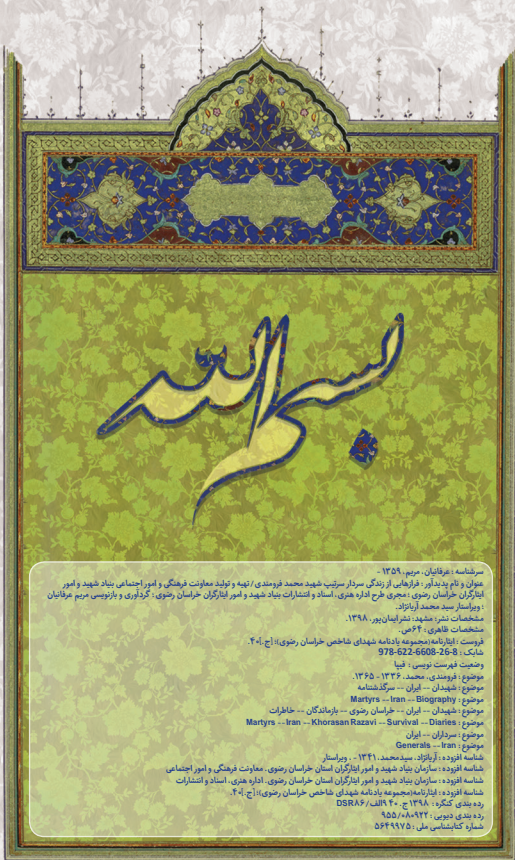 بسم الله
سرشناسه : عرفانیان، مریم، ۱۳۵۹ -
عنوان و نام پدیدآور : فرازهایی از زندگی سردار سرتیپ شهید محمد فرومندی / تهیه و تولید معاونت فرهنگی و امور اجتماعی بنیاد شهید و امور
ایثارگران خراسان رضوی ؛ مجری طرح اداره هنری، اسناد و انتشارات بنیاد شهید و امور ایثارگران خراسان رضوی ؛ گردآوری و بازنویسی مریم عرفانیان
؛ ویراستار سید محمد آریانژاد.
مشخصات نشر: مشهد: نشر ایمان‌پور، ۱۳۹۸.
مشخصات ظاهری : ۶۴ ص.
فروست : ایثارنامه(مجموعه یادنامه شهدای شاخص خراسان رضوی)؛ [ج.] ۴۰.
شابک : 978-622-6608-26-8
وضعیت فهرست نویسی : فیپا
موضوع : فرومندی، محمد، ۱۳۳۶ - ۱۳۶۵.
موضوع : شهیدان -- ایران -- سرگذشتنامه
موضوع : Martyrs -- Iran -- Biography
موضوع : شهیدان -- ایران -- خراسان رضوی -- بازماندگان -- خاطرات
موضوع : Martyrs -- Iran -- Khorasan Razavi -- Survival -- Diaries
موضوع : سرداران -- ایران
موضوع : Generals -- Iran
شناسه افزوده : آریانژاد، سیدمحمد، ۱۳۴۱ - ، ویراستار
شناسه افزوده : سازمان بنیاد شهید و امور ایثارگران استان خراسان رضوی. معاونت فرهنگی و امور اجتماعی
شناسه افزوده : سازمان بنیاد شهید و امور ایثارگران استان خراسان رضوی. اداره هنری، اسناد و انتشارات
شناسه افزوده : ایثارنامه(مجموعه یادنامه شهدای شاخص خراسان رضوی)؛ [ج.] ۴۰.
رده بندی کنگره : ۱۳۹۸ ج. ۴۰ ۹الف/DSR۸۶
رده بندی دیویی : ۹۵۵/۰۸۰۹۲۲
شماره کتابشناسی ملی : ۵۶۴۹۹۷۵